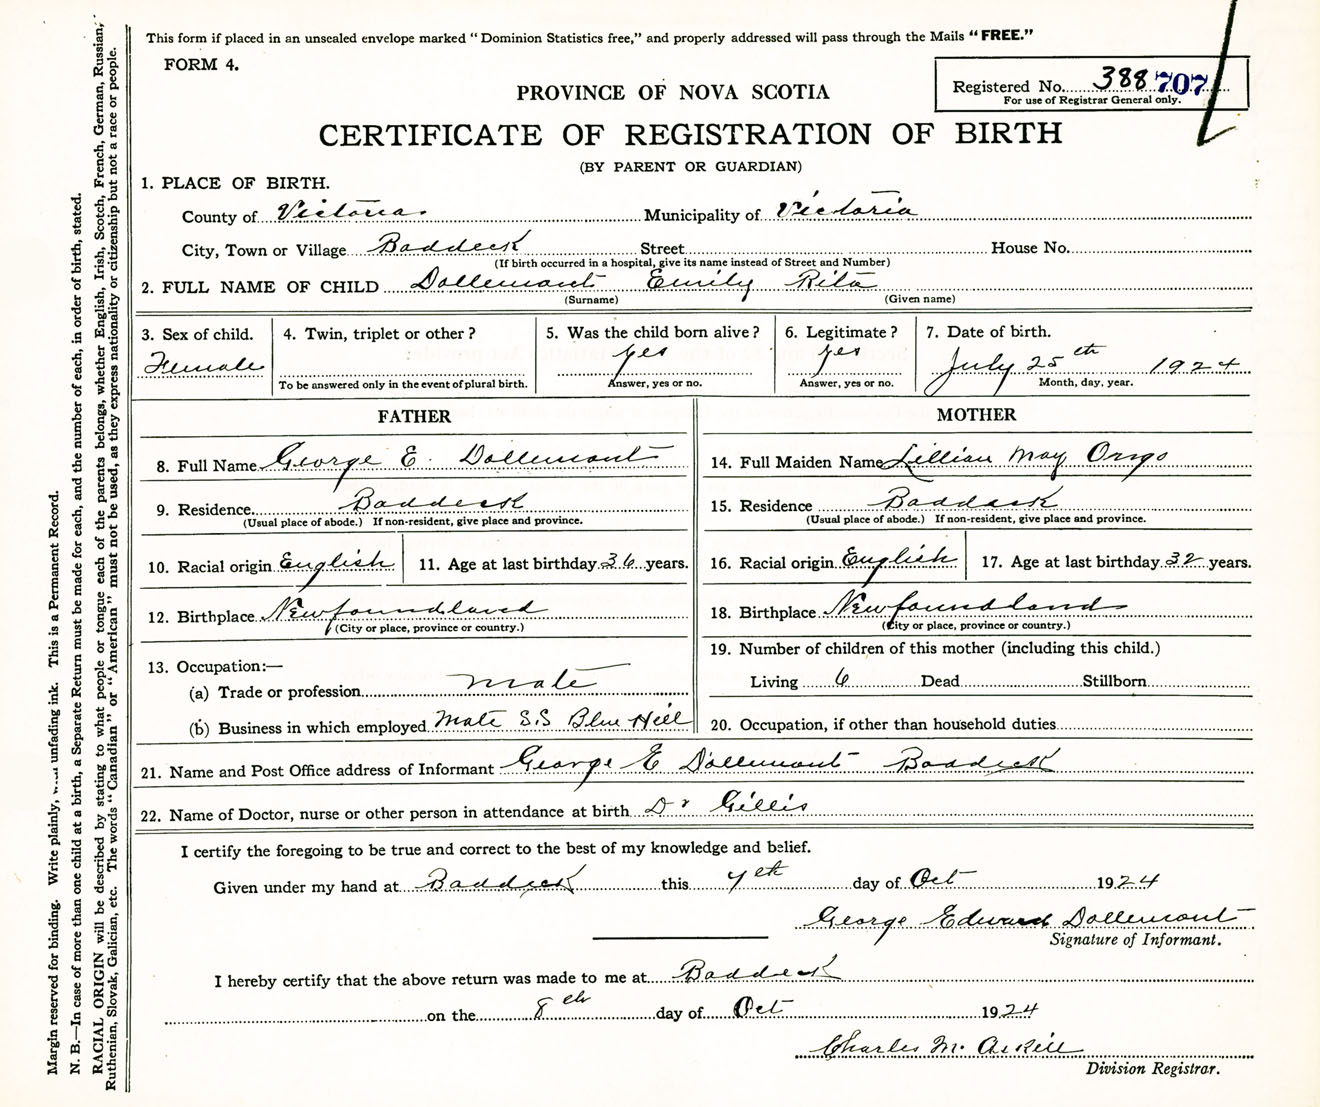 This form if placed in an unsealed envelope marked "Dominion Statistics free," and properly addressed will pass through the Mails "FREE."
FORM 4.
Registered No. 388707
For use of Registrar General only.
PROVINCE OF NOVA SCOTIA
CERTIFICATE OF REGISTRATION OF BIRTH
(BY PARENT OR GUARDIAN)
1. PLACE OF BIRTH.
County of Victoria Municipality of Victoria
City, Town or Village Baddeck Street House No.
(If birth occurred in a hospital, give its name instead of Street and Number)
2. FULL NAME OF CHILD Dollemont Emily Rita
(Surname) (Given name)
3. Sex of child. 4. Twin, triplet or other? 5. Was the child born alive? 6. Legitimate? 7. Date of birth.
Female yes yes July 25th 1924
To be answered only in the event of plural birth. Answer, yes or no. Answer, yes or no. Month, day, year.
FATHER
8. Full Name George E. Dollemont
9. Residence Baddeck
(Usual place of abode.) If non-resident, give place and province.
10. Racial origin English 11. Age at last birthday 36 years.
12. Birthplace Newfoundland
(City or place, province or country.)
13. Occupation:—
(a) Trade or profession Mate
(b) Business in which employed Mate S.S Blue Hill
MOTHER
14. Full Maiden Name Lillian May
15. Residence Baddeck
(Usual place of abode.) If non-resident, give place and province.
16. Racial origin English 17. Age at last birthday 32 years.
18. Birthplace Newfoundland
(City or place, province or country.)
19. Number of children of this mother (including this child.)
Living 6 Dead Stillborn
20. Occupation, if other than household duties
21. Name and Post Office address of Informant George E Dollemont Baddeck
22. Name of Doctor, nurse or other person in attendance at birth Dr Gillis
I certify the foregoing to be true and correct to the best of my knowledge and belief.
Given under my hand at Baddeck this 7th day of Oct 1924
George Edward Dollemont
Signature of Informant.
I hereby certify that the above return was made to me at Baddeck
on the 8th day of Oct 1924
Charles McAskill
Division Registrar.
Margin reserved for binding. Write plainly, unfading ink. This is a Permanent Record.
N. B.—In case of more than one child at a birth, a Separate Return must be made for each, and the number of each, in order of birth, stated.
RACIAL ORIGIN will be described by stating to what people or tongue each of the parents belongs, whether English, Irish, Scotch, French, German, Russian,
Ruthenian, Slovak, Galician, etc. The words "Canadian" or "American" must not be used, as they express nationality or citizenship but not a race or people.